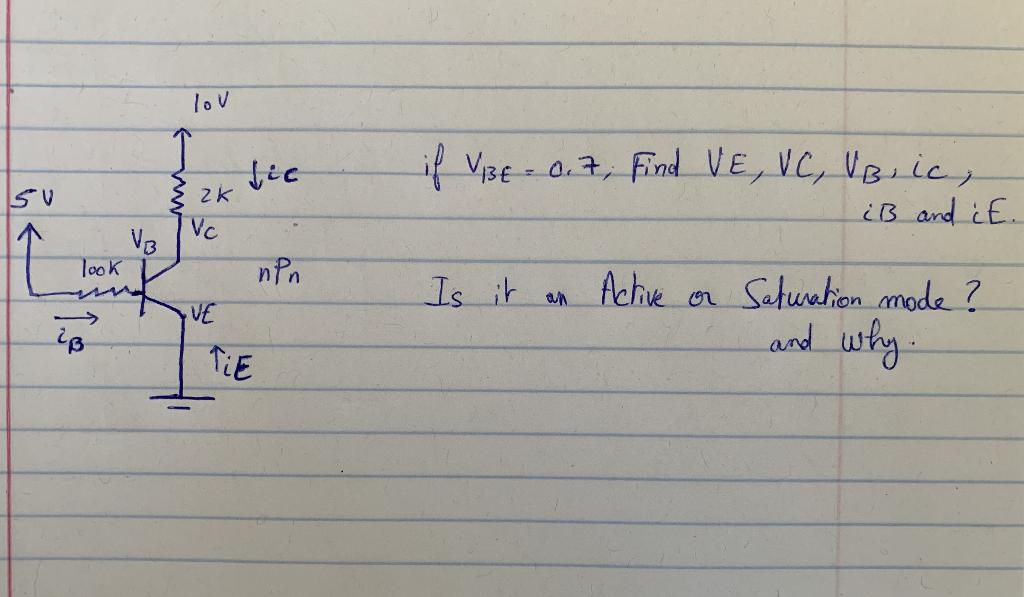 10V
↓ic
2K
5V
VC
VB
100K
nPn
VE
iB
↑iE
if VBE = 0.7, Find VE, VC, VB, ic,
iB and iE.
Is it an Active or Saturation mode?
and why.